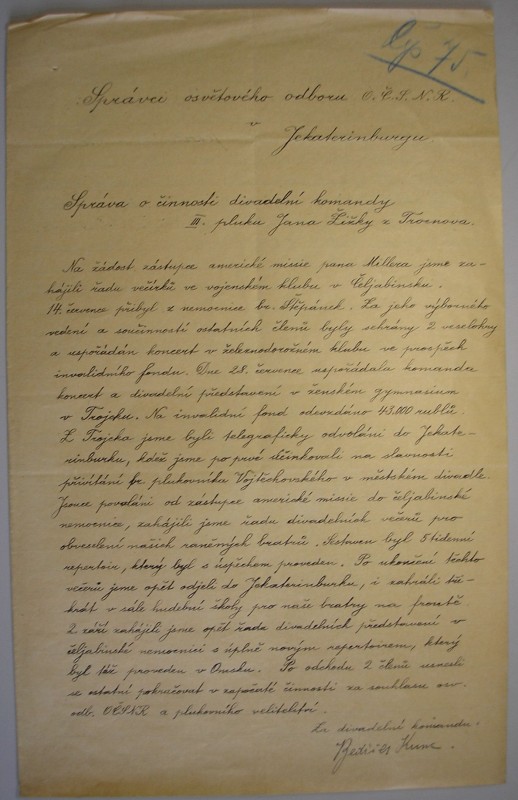 75.
Správci osvětového odboru O.Č.S.N.R.
v
Jekaterinburgu.
Správa o činnosti divadelní komandy
III. pluku Jana Žižky z Trocnova.
Na žádost zástupce americké missie pana Millera jsme za-
hájili řadu večírků ve vojenském klubu v Čeljabinsku.
14. července přibyl z nemocnice br. Štěpánek. Za jeho výborného
vedení a součinnosti ostatních členů byly sehrány 2 veselohry
a uspořádán koncert v železnodorožném klubu ve prospěch
invalidního fondu. Dne 28. července uspořádala komanda
koncert a divadelní představení v ženském gymnasium
v Trojcku. Na invalidní fond odevzdáno 43.000 rublů.
Z Trojcka jsme byli telegraficky odvoláni do Jekate-
rinburku, kdež jsme poprvé účinkovali na slavnosti
přivítání br. plukovníka Vojtěchovského v městském divadle.
Jsouce povoláni od zástupce americké missie do čeljabinské
nemocnice, zahájili jsme řadu divadelních večerů pro
obveselení našich raněných bratrů. Sestaven byl 5 tidenní
repertoir, který byl s úspěchem proveden. Po ukončení těchto
večerů jsme opět odjeli do Jekaterinburku, i zahráli
krát v sále hudební školy pro naše bratry na frontě.
2. září zahájili jsme opět řadu divadelních představení v
čeljabinské nemocnici s úplně novým repertoirem, který
byl též proveden v Omsku. Po odchodu 2 členů usnesli
se ostatní pokračovat v započaté činnosti za souhlasu osv.
odb. OČSNR a plukovního velitelství.
Za divadelní komandu:
Kunc.